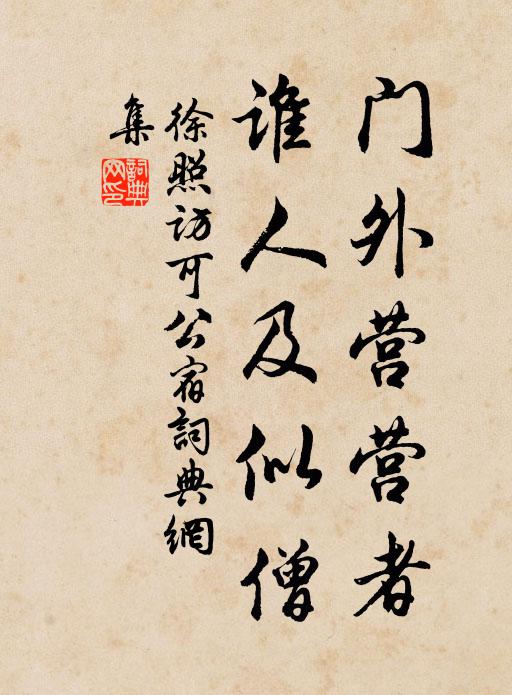 门外营营者
谁人及似僧
徐照访可公宿詞典網
集
詞典
网印